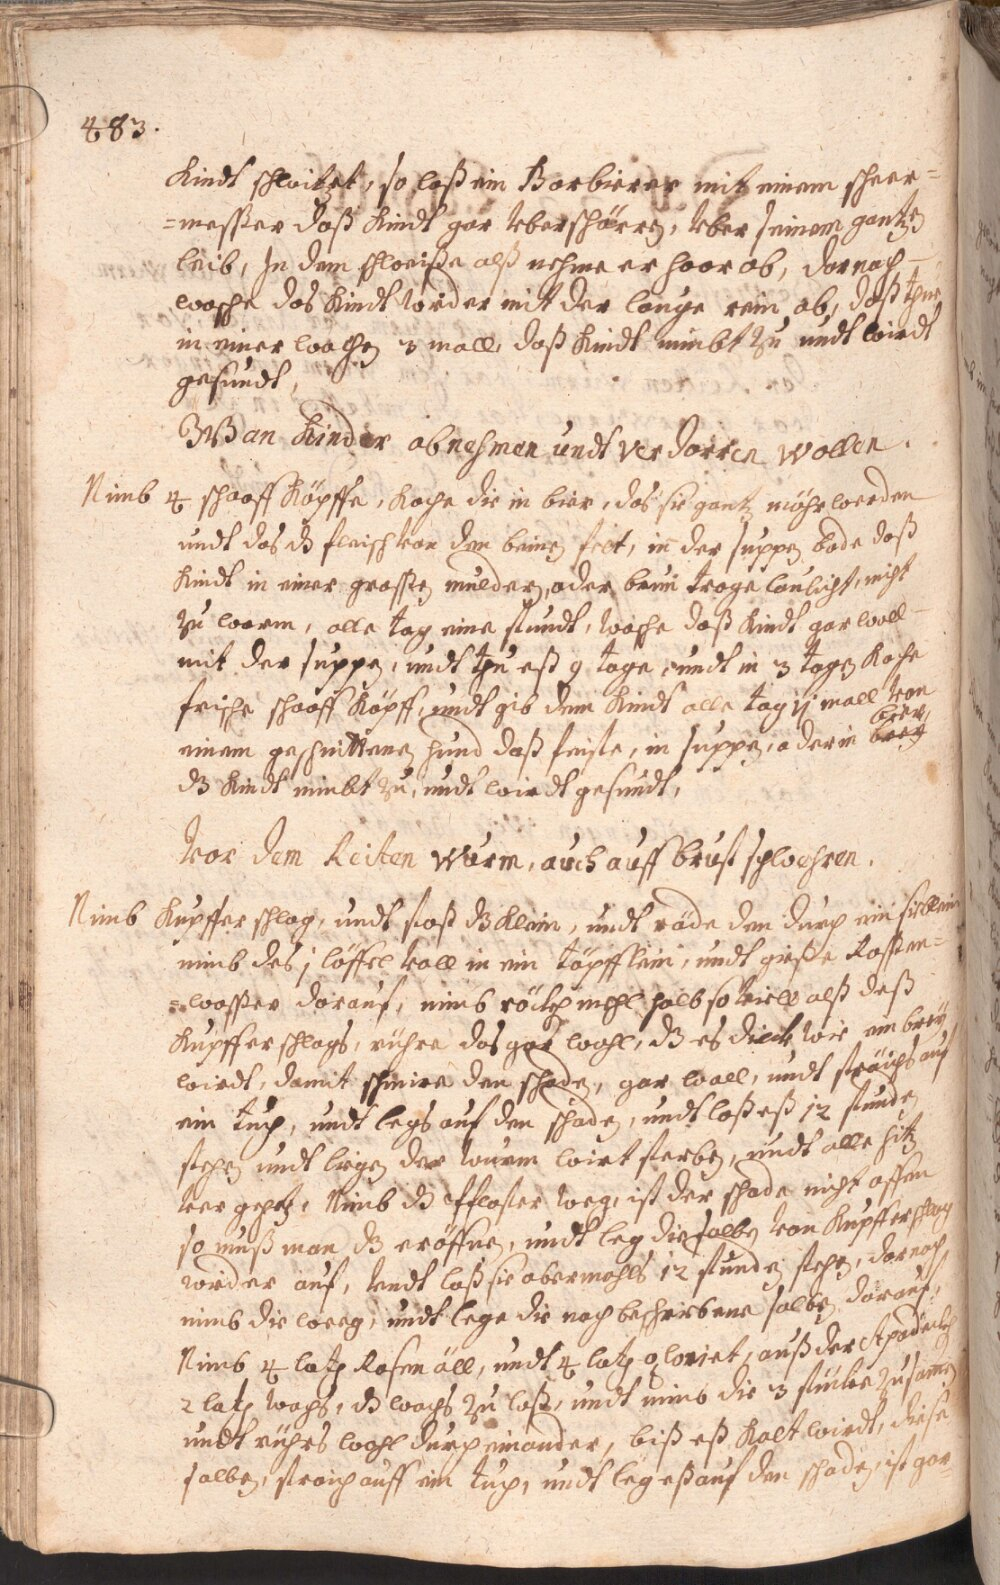 483.
Kindt schwitzet, so laß ein Barbierer mit einem scheer=
=messer daß Kindt gar vberschärren, vber seinem gantzen
leib, In dem schweiße alß nehme er haar ab, darnach
wasche das Kindt wider mit der lauge rein ab, daß thue
in einer wochen 3 mall, daß Kindt nimbt zu undt wirdt
gesundt,
Wan Kinder abnehmen undt verdorren wollen.
Nimb 4 schaaff Köpffe, Koche die in bier, das sie gantz mähr werden
undt das dz fleisch von den beinen felt, in der suppen bade daß
Kindt in einer grossen mulden, oder trage laulicht, nicht
zu warm, alle tag eine stundt, wasche daß Kindt gar woll
mit der suppen, undt thu eß 9 tage undt in 3 tagen Koche
frische schaaff Köpff, undt gib dem Kindt alle tag ij mall von
einem geschnittenen hund daß feiste, in suppen, oder in brey
dz Kindt nimbt zu, undt wirdt gesundt,
Vor dem Reiten Wurm, auch auff brust schwehren.
Nimb Kupffer schlag, undt stoß dz klein, undt räde den durch ein sieblein
nimb des j löffel voll in ein töpfflein, undt gieße Rosen=
=wasser darauf, nimb röcken mehl halb so viell alß deß
Kupffer schlags, rühre das gar wohl, dz es dick wie ein brey
wirdt, damit schmire den schaden, gar woll, undt streichs auf
ein tuch, undt legs auf den schaden, undt laß eß 12 stunden
stehen undt ligen der wurm wirt sterben, undt alle hitz
vergehet, Nimb dz Pflaster weg, ist der schade nicht offen
so muß man dz eröffnen, undt leg die salbe von Kupfferschlag
wider auf, vndt laß sie abermahls 12 stunden stehen, darnach
nimb die weeg, undt lege die nach beschribene salbe, darauf,
Nimb 4 loth Rosen äll, undt 4 loth gloriet, auß der Apodecke
2 loth wachs, dz wachs zu laß, undt nimb die 3 stücke zusamen
undt rührs wohl durch einander, biß eß Kalt wirdt, diese
salben, streich auff ein tuch, undt leg eß auf den schaden, ist gar